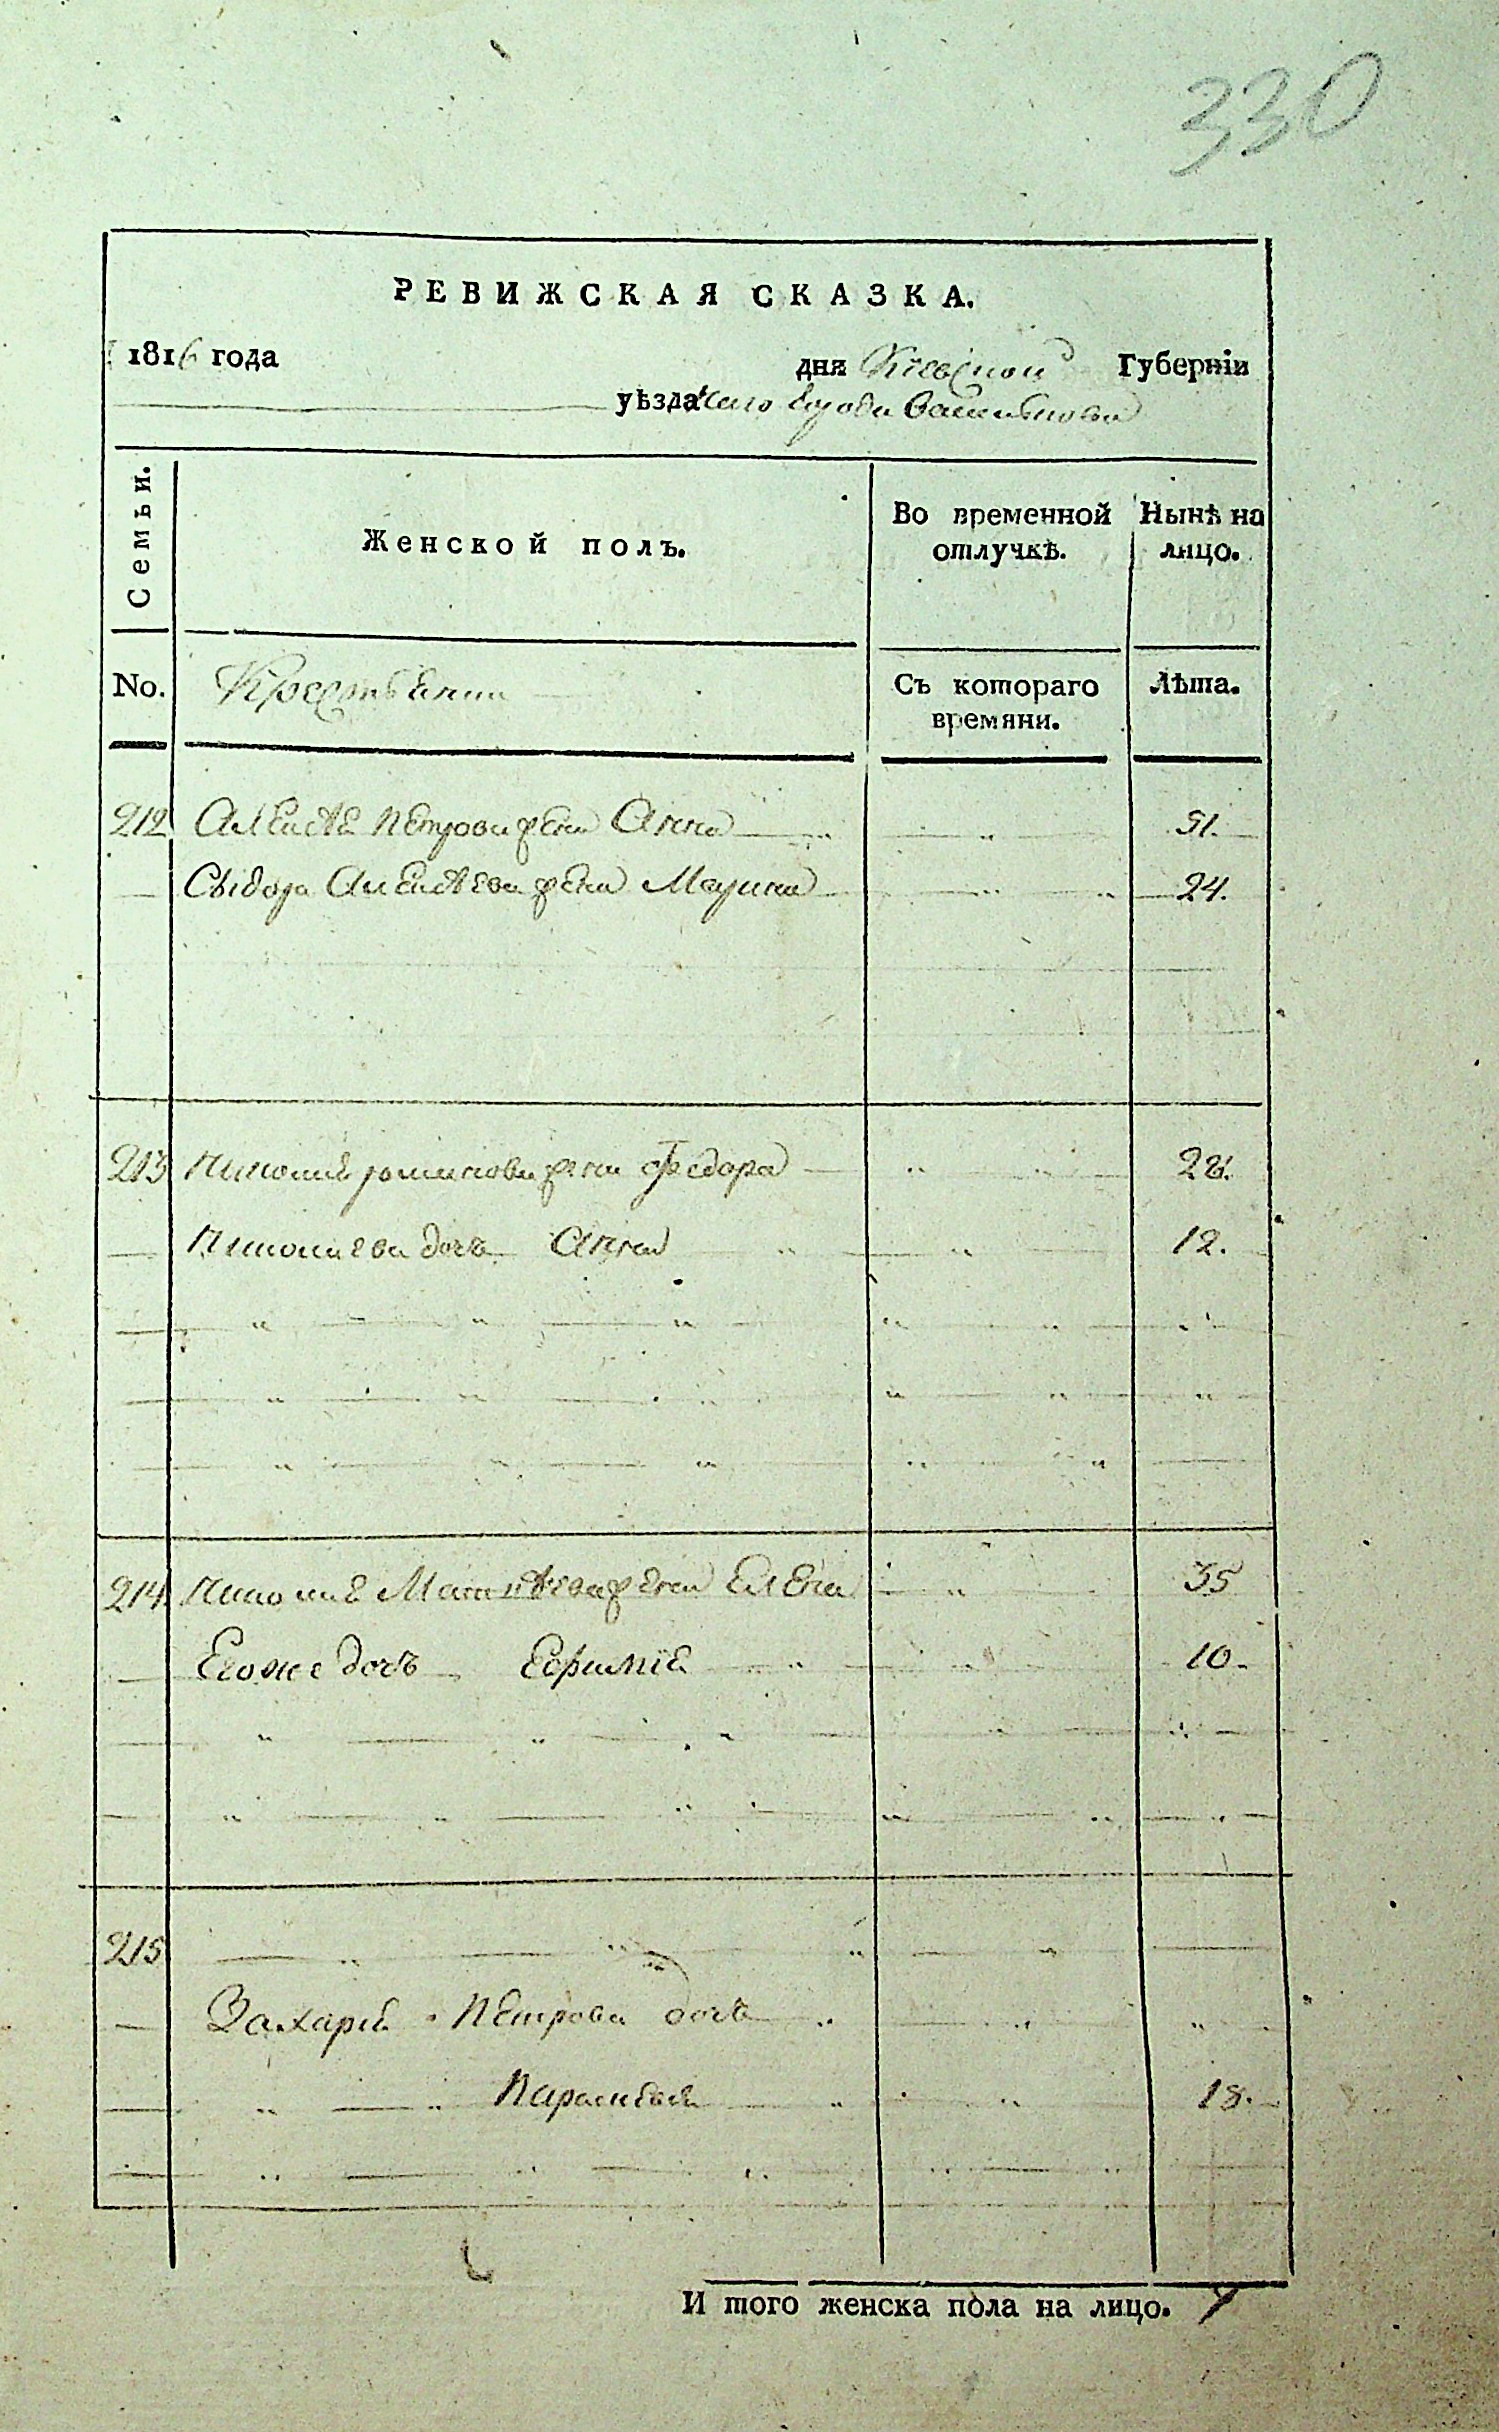 330
РЕВИЖСКАЯ СКАЗКА.
1816 года дня Кіевской Губерніи
уѣзда города Василькова
Семьи. Женской полъ. Во временной отлучкѣ. Нынѣ на лицо.
No. Крестьяни Съ котораго времяни. Лѣта.
212 Алексѣя Петрова жена Анна 51.
Алексѣева жена Марина 24.
213 жена Федора 28.
дочь Анна 12.
214 Матвѣева жена Елена 35
Егоже дочь Ефимія 10.
215
Захарія Петрова дочь
Параскевія 18.
И того женска пола на лицо. 7